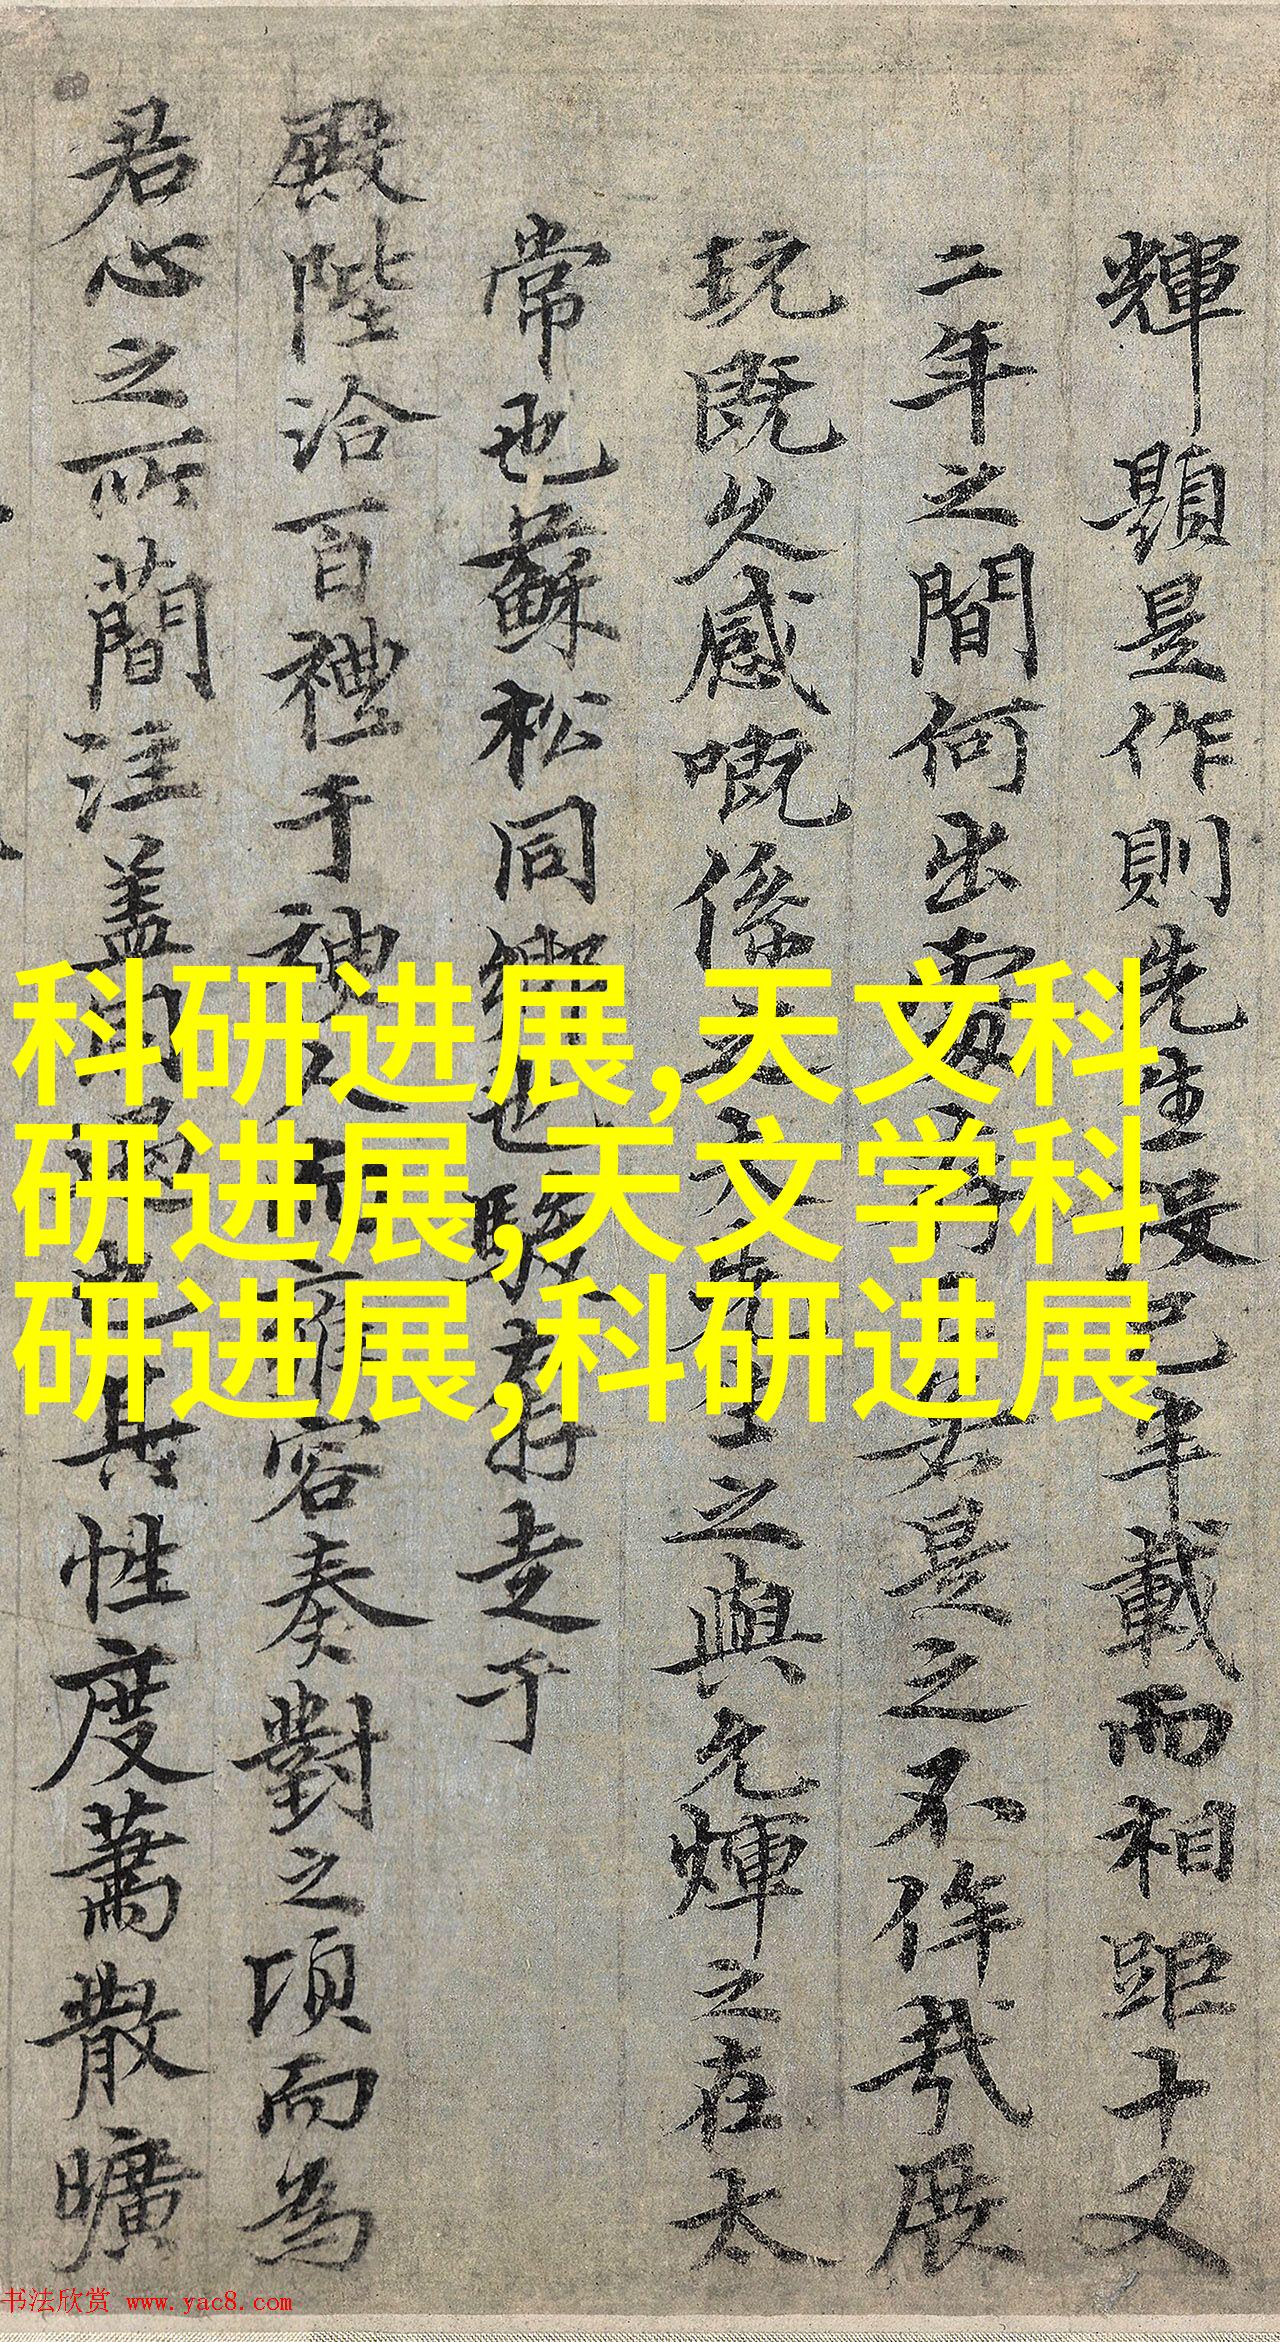 輝題是作則先生年載而相距十又
二年之間何出處是之不侔哉展
玩既久感嘅係之之與允煇之在太
常也蘇松同也存走于
殿陛洽百禮于容奏對之頃而為
君心之所蕳注蓋其性度蕭散曠
科研进展,天文科
研进展,天文学科
研进展,科研进展
书法欣赏 www.yac8.com